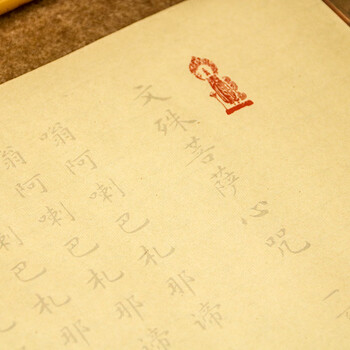 文殊菩萨心咒
嗡阿喇巴札那谛
嗡阿喇巴札那谛
喇巴札那